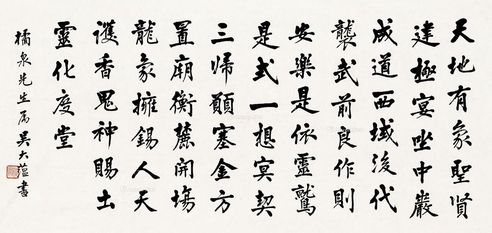 天地有象聖賢
建極宴坐中巖
成道西域後代
襲武前良作則
安樂是依靈鷲
是式一想冥契
三歸願塞金方
置廟衡麓開場
龍象擁錫人天
護香鬼神賜土
靈化度堂
橘泉先生属吴大蕴書